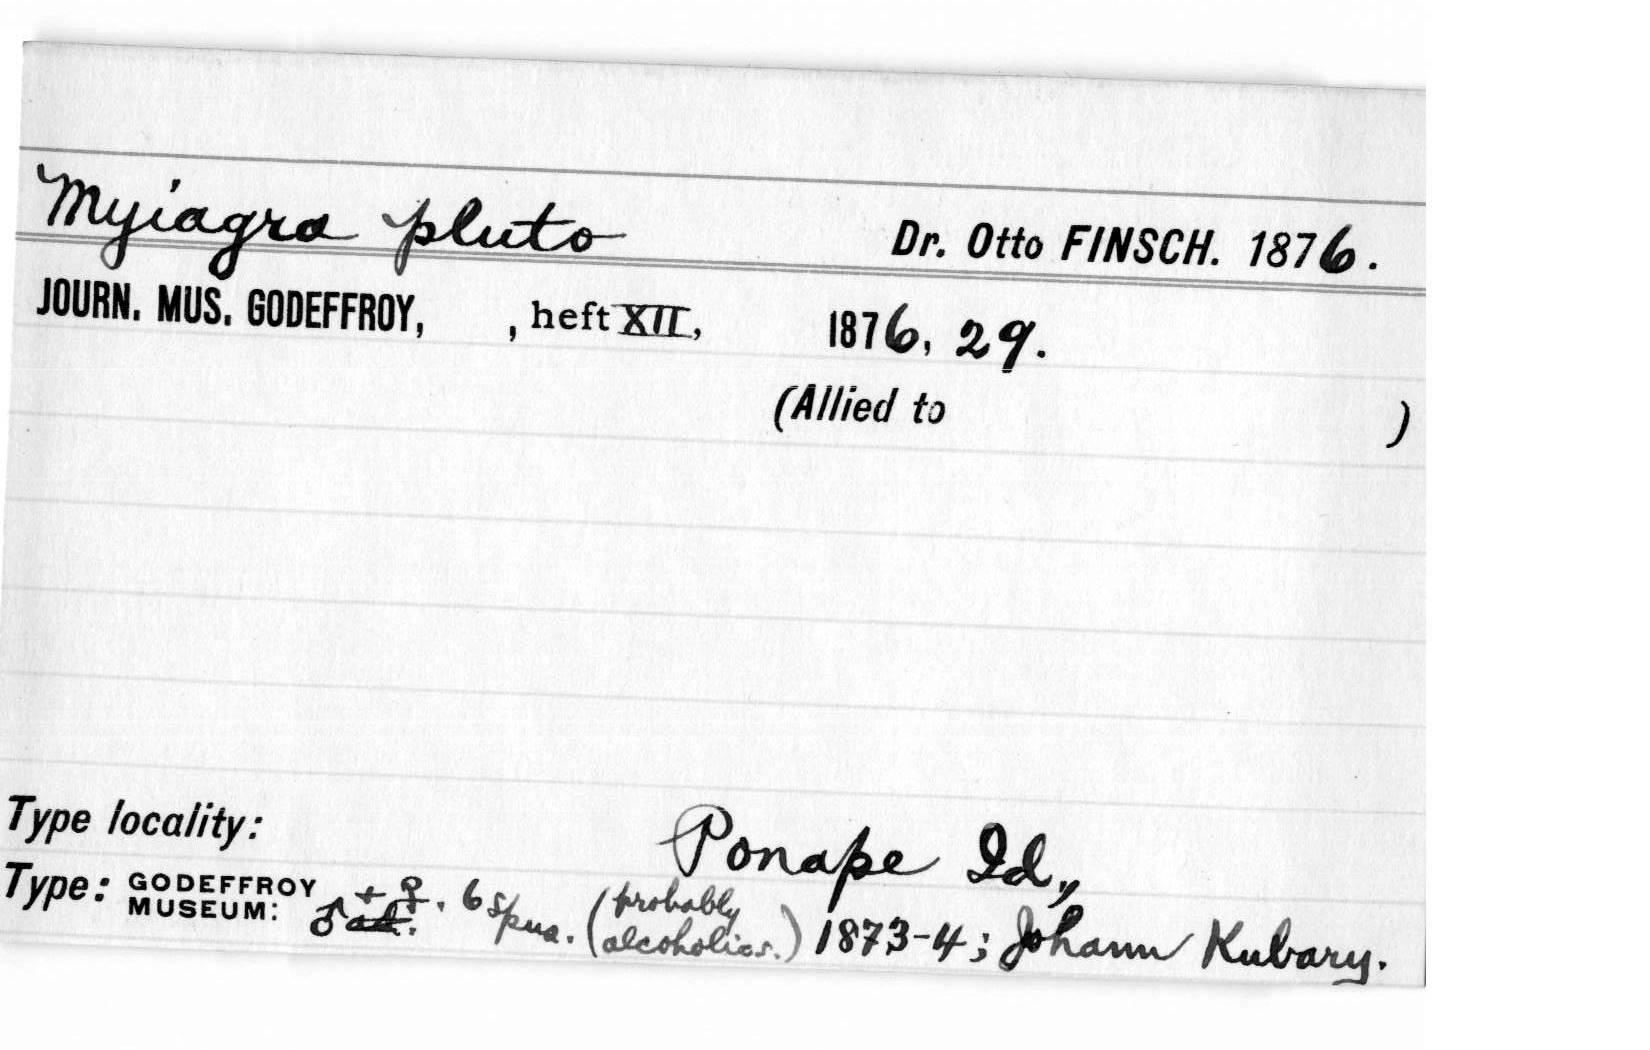 Myiagra pluto Dr. Otto FINSCH. 1876.
JOURN. MUS. GODEFFROY, , heft XII, 1876, 29.
(Allied to )
Type locality: Ponape Id.,
Type: GODEFFROY MUSEUM: ♂ ad. + ♀. 6 spna. (probably alcoholics.) 1873-4; Johann Kubary.